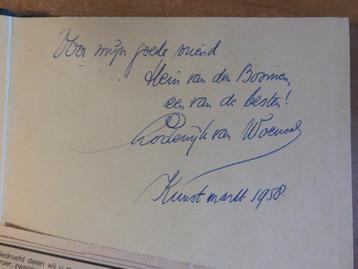 Voor mijn goede vriend
Hein van den Boomen,
een van de besten!
Lodewijk van Woensel
Kunstmarkt 1958.
Bedroefd delen wij u